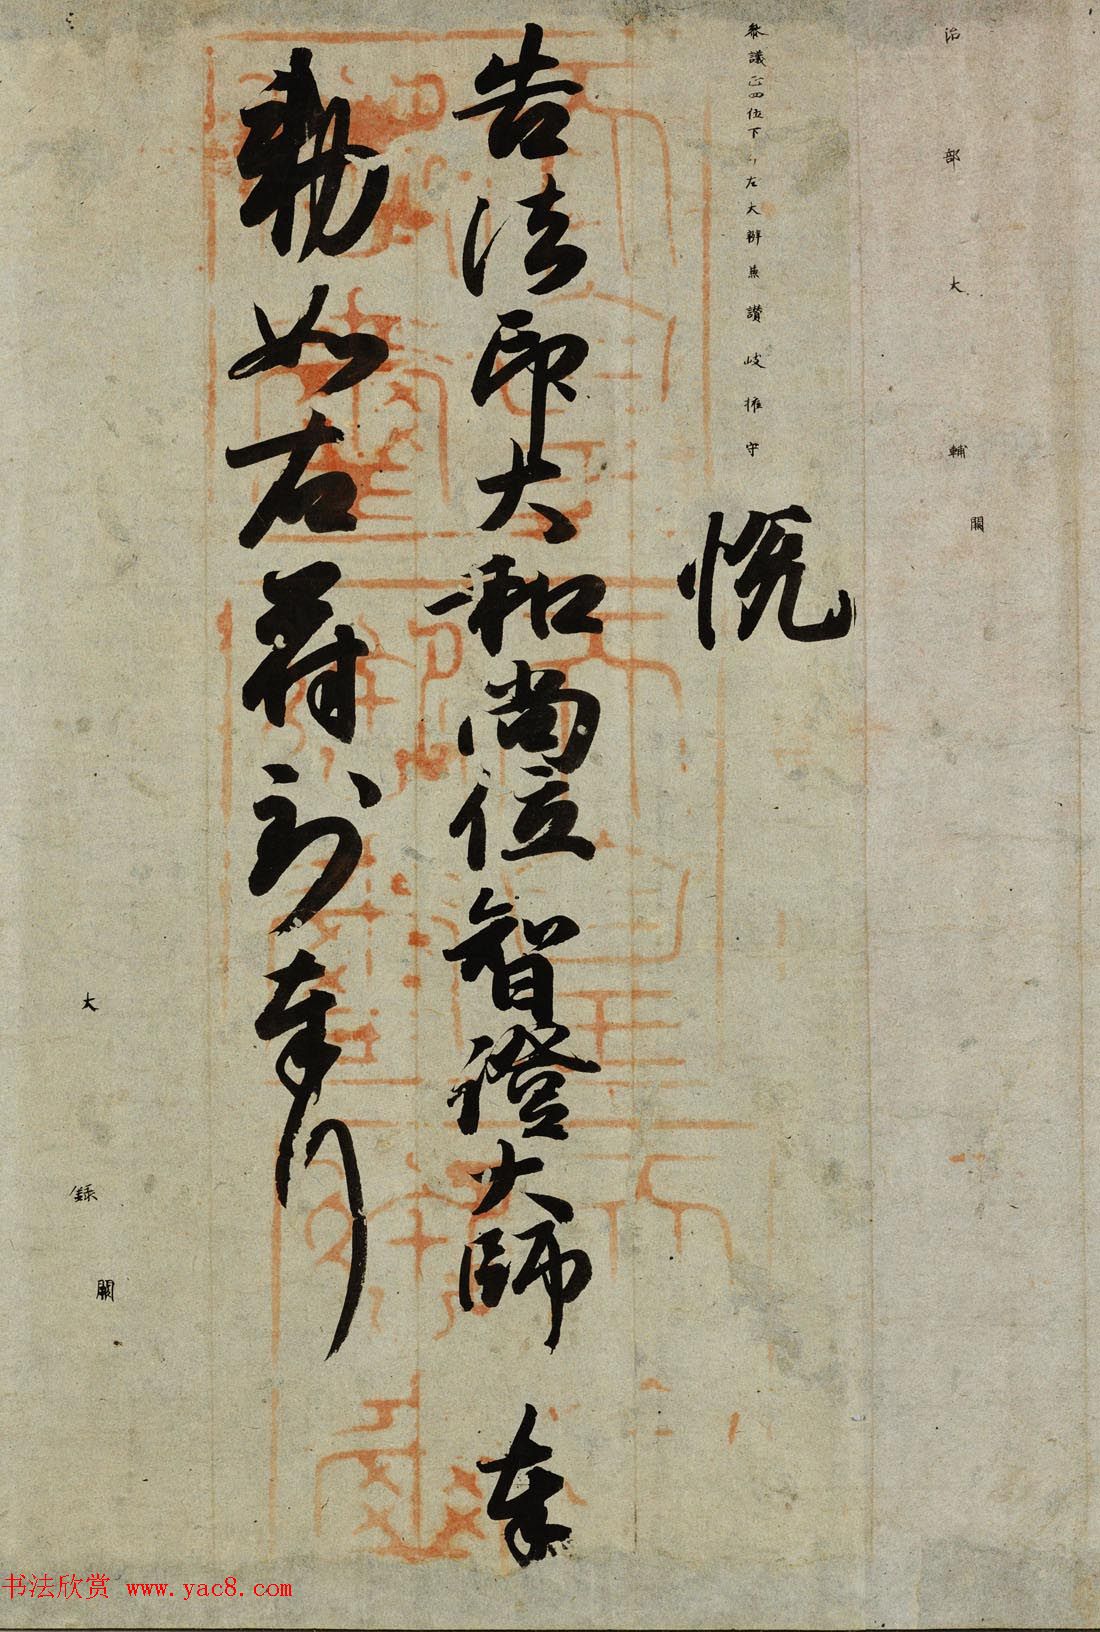 治部大輔 闕
参議正四位下行左大辨兼讃岐權守
悦
告法印大和尚位智證大師 奉
勅如右符到奉行
大録 闕
书法欣赏 www.yac8.com